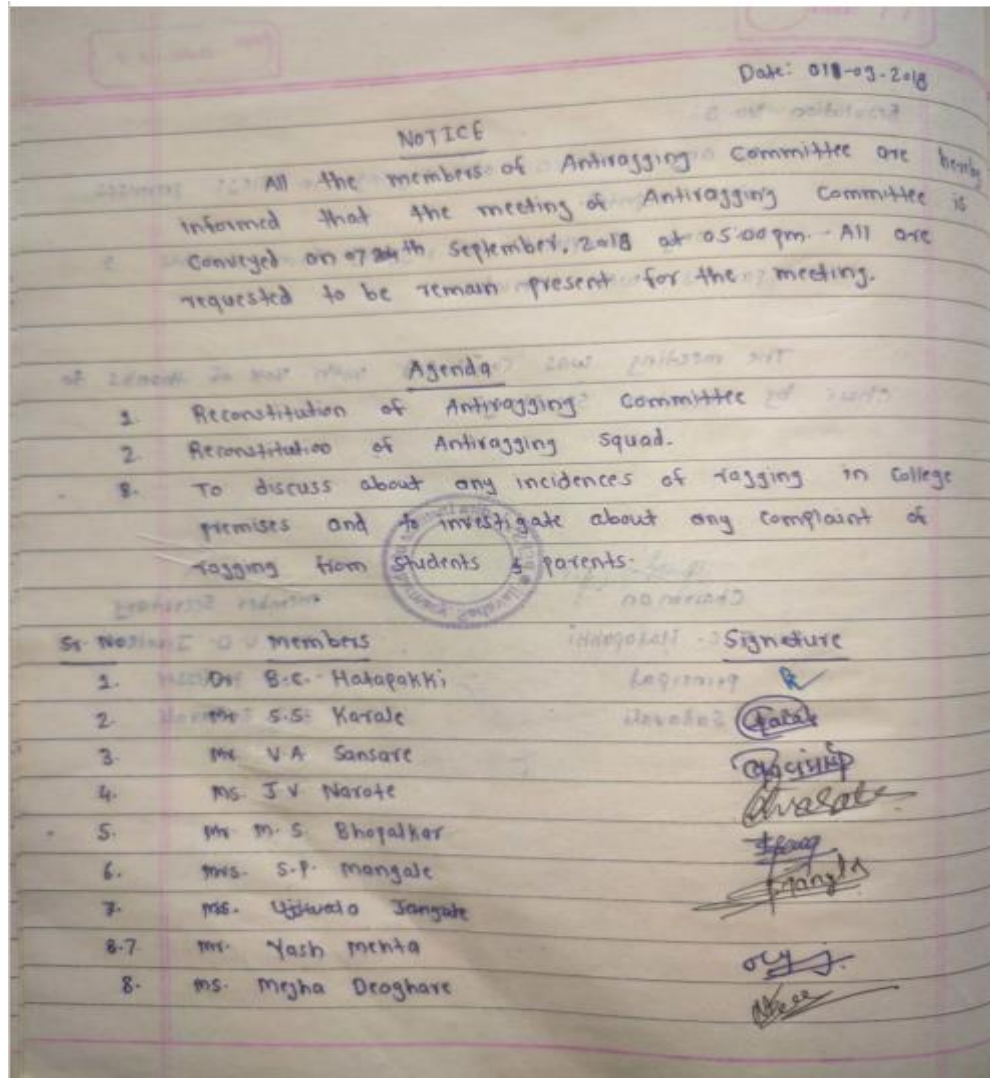 Date: 018-09-2018
NOTICE
All the members of Antiragging Committee are hereby
informed that the meeting of Antiragging Committee is
Conveyed on 07th September, 2018 at 05:00 pm. All are
requested to be remain present for the meeting.
Agenda
1. Reconstitution of Antiragging Committee
2. Reconstitution of Antiragging Squad.
3. To discuss about any incidences of ragging in College
premises and to investigate about any Complaint of
ragging from students & parents.
Sr. No members Signature
1. Dr B.C. Hatapakki
2. Mr S.S. Karale
3. Mr. V A Sansare
4. Ms. J V Narote
5. Mr M. S. Bhopalkar
6. Mrs. S.P. Mangale
7. Ms. Ujjwala Jangale
8.7 Mr. Yash Mehta
8. Ms. Megha Deoghare